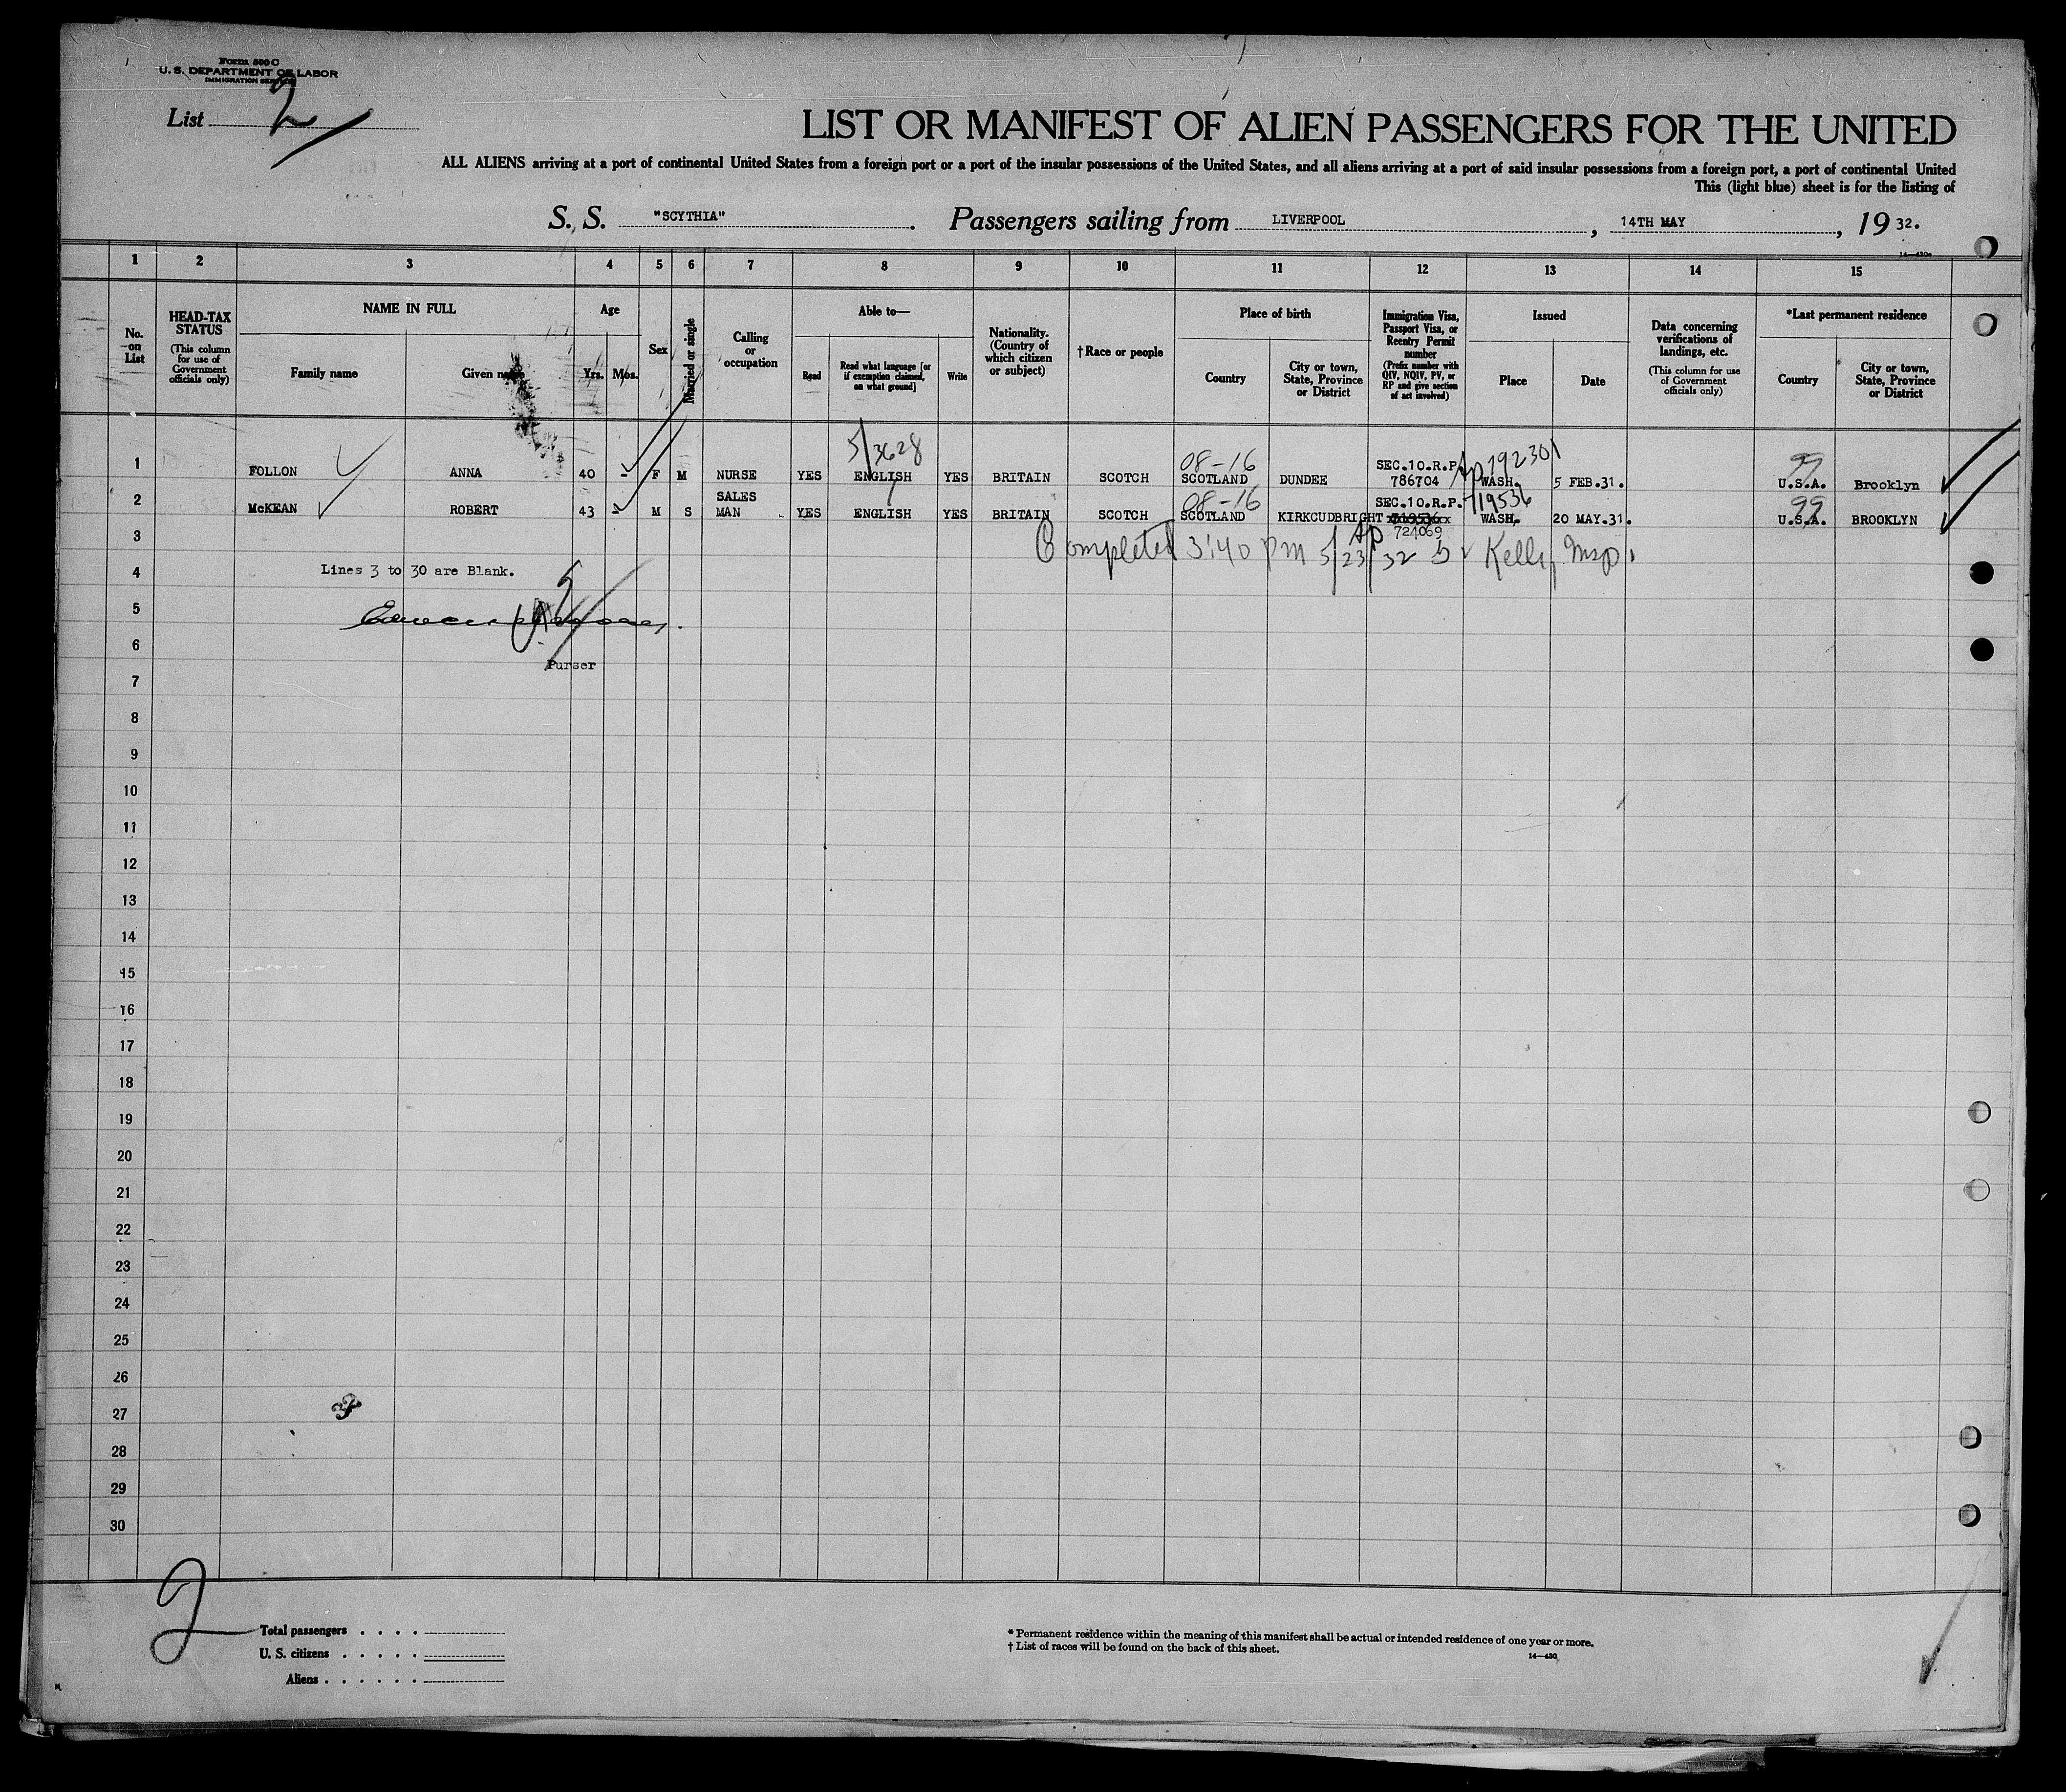 Form 500 C
U. S. DEPARTMENT OF LABOR
IMMIGRATION SERVICE
List 2
LIST OR MANIFEST OF ALIEN PASSENGERS FOR THE UNITED
ALL ALIENS arriving at a port of continental United States from a foreign port or a port of the insular possessions of the United States, and all aliens arriving at a port of said insular possessions from a foreign port, a port of continental United
This (light blue) sheet is for the listing of
S. S. "SCYTHIA". Passengers sailing from LIVERPOOL, 14TH MAY, 19 32.
1 2 3 4 5 6 7 8 9 10 11 12 13 14 15
No. on List
HEAD-TAX STATUS (This column for use of Government officials only)
NAME IN FULL
Family name Given name
Age
Yrs. Mos.
Sex
Married or single
Calling or occupation
Able to—
Read Read what language [or if exemption claimed, on what ground] Write
Nationality. (Country of which citizen or subject)
†Race or people
Place of birth
Country City or town, State, Province or District
Immigration Visa, Passport Visa, or Reentry Permit number (Prefix number with QIV, NQIV, PV, or RP and give section of act involved)
Issued
Place Date
Data concerning verifications of landings, etc. (This column for use of Government officials only)
*Last permanent residence
Country City or town, State, Province or District
5/3628 08-16 SEC.10.R.P. 792301 99
1 FOLLON ANNA 40 - F M NURSE YES ENGLISH YES BRITAIN SCOTCH SCOTLAND DUNDEE 786704 WASH. 5 FEB.31. U.S.A. Brooklyn
08-16 SEC.10.R.P. 719536 99
2 McKEAN ROBERT 43 - M S SALES MAN YES ENGLISH YES BRITAIN SCOTCH SCOTLAND KIRKCUDBRIGHT 719536 WASH. 20 MAY.31. U.S.A. BROOKLYN
724069
3 Completed 3:40 pm 5/23/32 Kelly
4 Lines 3 to 30 are Blank.
5
6 Purser
7
8
9
10
11
12
13
14
15
16
17
18
19
20
21
22
23
24
25
26
27
28
29
30
2
Total passengers
U. S. citizens
Aliens
* Permanent residence within the meaning of this manifest shall be actual or intended residence of one year or more.
† List of races will be found on the back of this sheet.
14—430